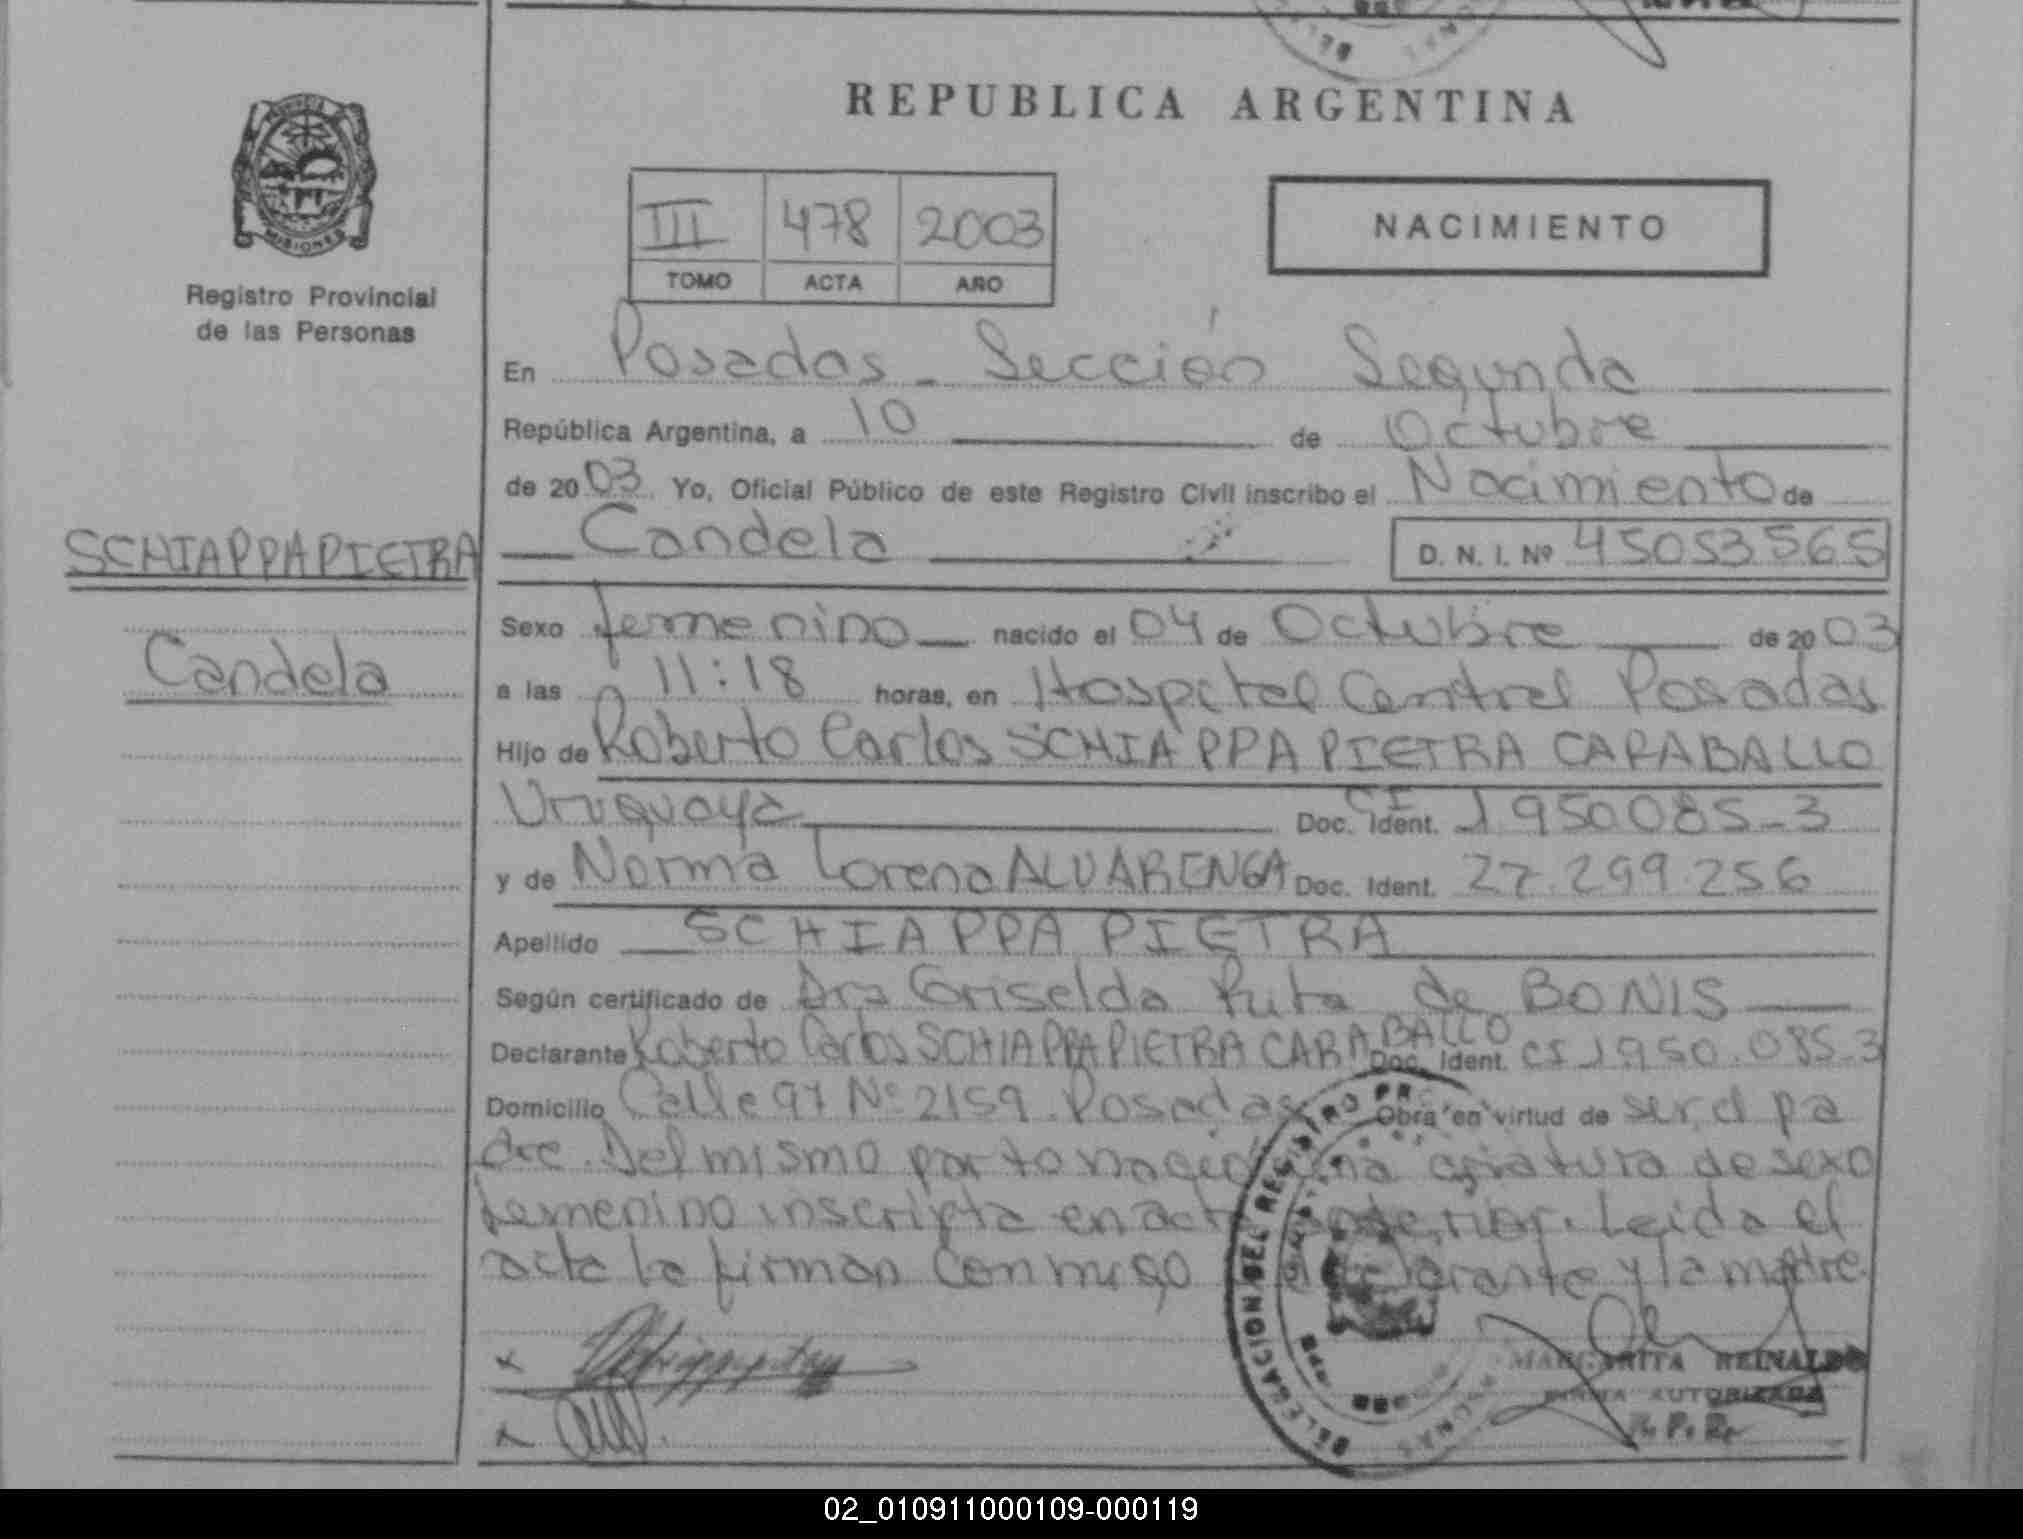 REPUBLICA ARGENTINA
MISIONES
Registro Provincial
de las Personas
III 478 2003
TOMO ACTA AÑO
NACIMIENTO
En Posadas - Sección Segunda
República Argentina, a 10 de Octubre
de 2003 Yo, Oficial Público de este Registro Civil inscribo el Nacimiento de
Candela D. N. I. Nº 45053565
SCHIAPPAPIETRA
Candela
Sexo femenino nacido el 04 de Octubre de 2003
a las 11:18 horas, en Hospital Central Posadas
Hijo de Roberto Carlos SCHIAPPAPIETRA CARABALLO
Uruguaya Doc. Ident. CI 1950085-3
y de Norma Lorena ALVARENGA Doc. Ident. 27.299.256
Apellido SCHIAPPAPIETRA
Según certificado de Dra Griselda Ruta de BONIS
Declarante Roberto Carlos SCHIAPPAPIETRA CARABALLO Doc. Ident. CI 1950.085-3
Domicilio Calle 97 Nº 2159. Posadas Obra en virtud de ser el pa
dre. Del mismo parto nació una criatura de sexo
femenino inscripta en acta anterior. Leida el
acta la firman conmigo el declarante y la madre.
DELEGACION DEL REGISTRO
MARGARITA REINALDO
FIRMA AUTORIZADA
R. P. P.
02_010911000109-000119